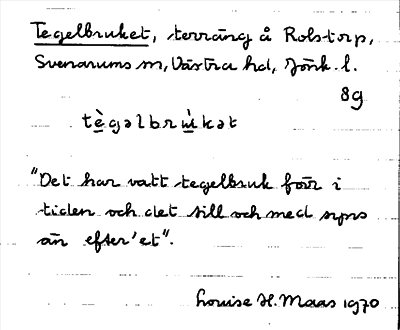 Tegelbruket, terräng å Rolstorp,
Svenarums sn, Västra hd, Jönk. l.
8g
tègəlbrùkət
"Det har vatt tegelbruk förr i
tiden och det till och med syns
än efter'et".
Louise H. Maas 1970